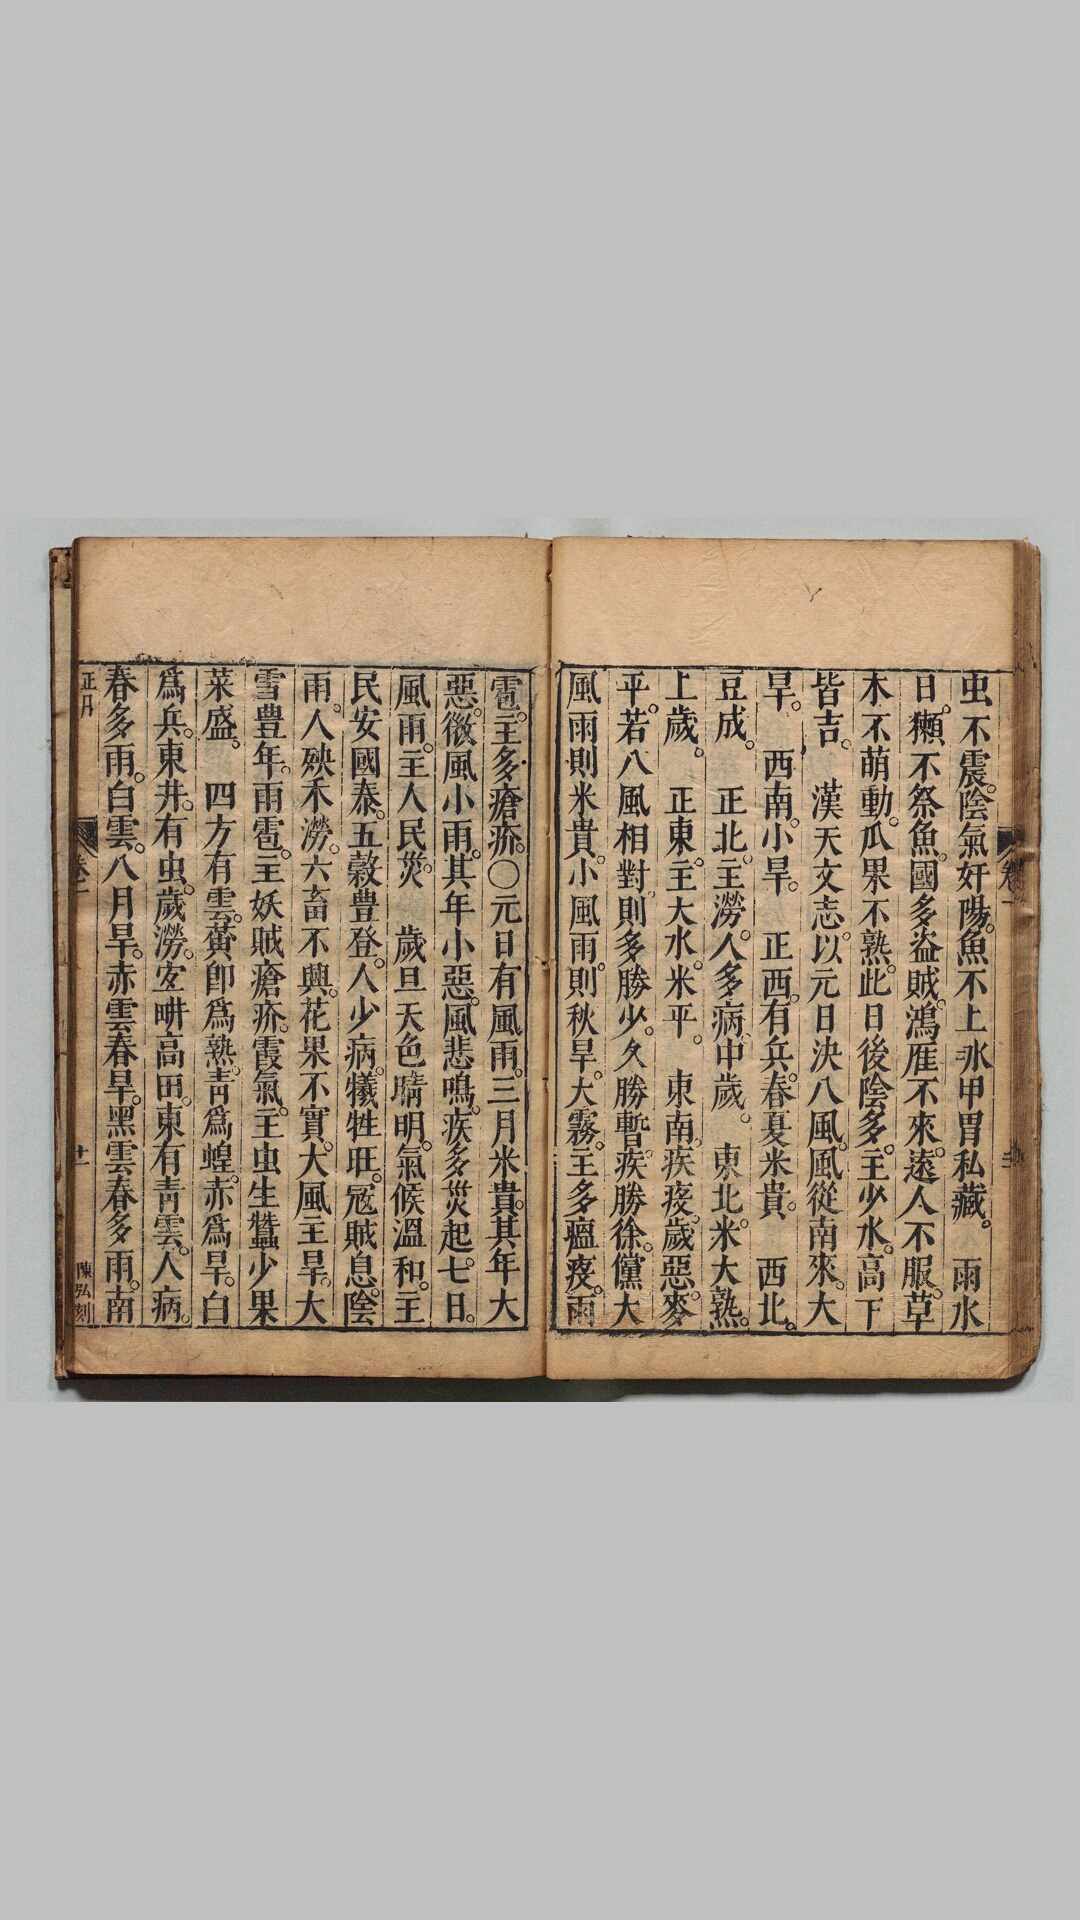 虫不震。陰氣奸陽。魚不上氷。甲胃私藏。　雨水
日。獺不祭魚。國多盗賊。鴻雁不來。遠人不服。草
木不萌動。瓜果不熟。此日後陰多。主少水。高下
皆吉。　漢天文志。以元日決八風。風從南來。大
旱。　西南。小旱。　正西。有兵。春夏米貴。　西北。
豆成。　正北。主澇。人多病。中歲。　東北。米大熟。
上歲。　正東。主大水。米平。　東南。疾疫。歲惡。麥
平。若八風相對。則多勝少。久勝暫。疾勝徐。儻大
風雨則米貴。小風雨。則秋旱。大霧。主多瘟疫。雨
雹。主多瘡疥。〇元日有風雨。三月米貴。其年大
惡。微風小雨。其年小惡。風悲鳴。疾多災起。七日。
風雨。主人民災。　歲旦天色晴明。氣候溫和。主
民安國泰。五穀豊登。人少病。犧牲旺。寇賊息。陰
雨。人殃禾澇。六畜不興。花果不實。大風主旱。大
雪豊年。雨雹。主妖賊瘡疥。霞氣。主虫生蠶少果
菜盛。　四方有雲。黃卽爲熟。青爲蝗。赤爲旱。白
爲兵。東井。有虫。歲澇。宜畊高田。東有青雲。人病。
春多雨。白雲。八月旱。赤雲春旱。黑雲春多雨。南
正月
卷一
十一
陳弘刻